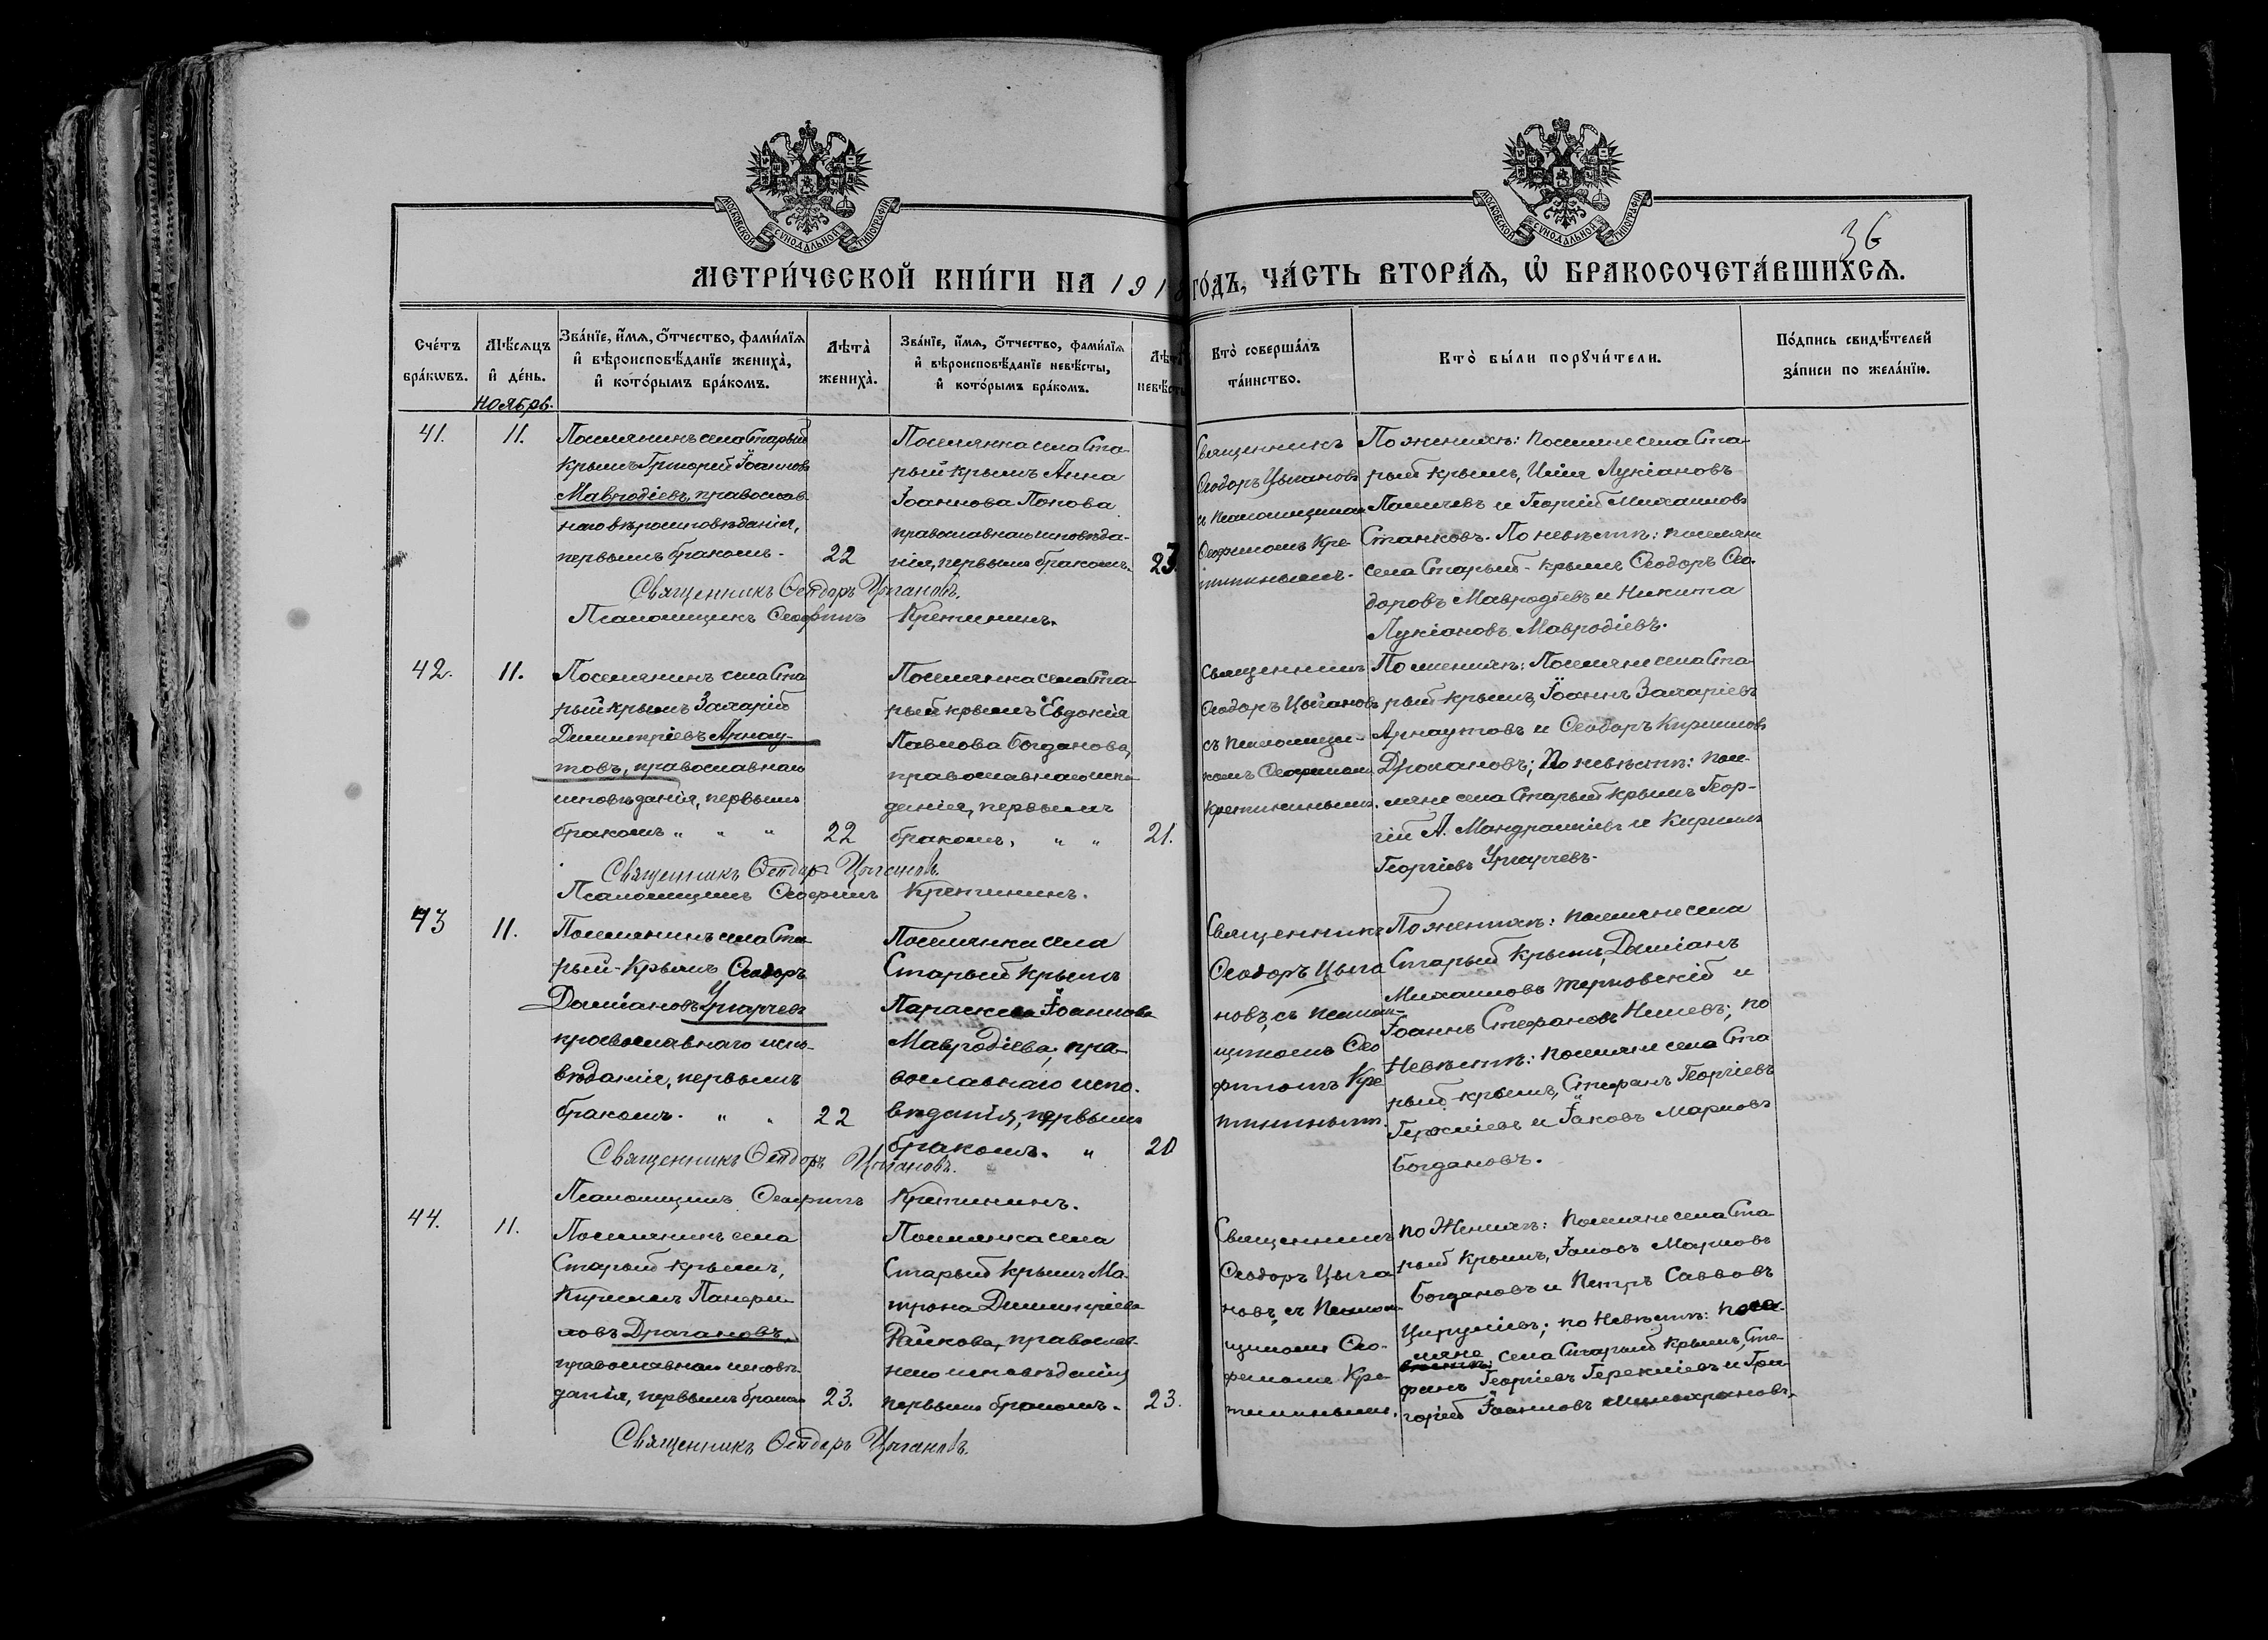 МОСКОВСКОЙ СѴНОДАЛЬНОЙ ТИПОГРАФІИ
МОСКОВСКОЙ СѴНОДАЛЬНОЙ ТИПОГРАФІИ
36
МЕТРИ́ЧЕСКОЙ КНИ́ГИ НА 191 ГО́ДЪ, ЧА́СТЬ ВТОРА́Ѧ, Ѽ БРАКОСОЧЕТА́ВШИХСѦ.
Сче́тъ бра́кѡвъ.
Мѣ́сѧцъ и҆ де́нь.
Зва́нїе, и҆́мѧ, ѻ҆́тчество, фами́лїѧ и҆ вѣроисповѣ́данїе жениха̀, и҆ кото́рымъ бра́комъ.
Лѣта̀ жениха̀.
Зва́нїе, и҆́мѧ, ѻ҆́тчество, фами́лїѧ и҆ вѣроисповѣ́данїе невѣ́сты, и҆ кото́рымъ бра́комъ.
Лѣта̀ невѣ́сты
Кто̀ соверша́лъ та́инство.
Кто̀ бы́ли порꙋчи́тели.
По́дпись свидѣ́телей за́писи по жела́нїю.
Ноябрь.
41.
11.
Поселянинъ села Старый
Крымъ Григорій Іоанновъ
Мавродіевъ, православ-
наго вѣроисповѣданія,
первымъ бракомъ -
22
Поселянка села Ста-
рый Крымъ Анна
Іоаннова Попова
православнаго исповѣда-
нія, первымъ бракомъ.
23
Священникъ
Ѳеодоръ Цыгановъ
съ псаломщикомъ
Ѳеофиломъ Кре-
тининымъ.
По женихѣ: поселяне села Ста-
рый Крымъ, Илія Лукіановъ
и Георгій Михаиловъ
Станковъ. По невѣстѣ: поселяне
села Старый-Крымъ Ѳеодоръ Ѳео-
доровъ Мавродіевъ и Никита
Лукіановъ Мавродіевъ.
Священникъ Ѳеодоръ Цыгановъ.
Псаломщикъ Ѳеофилъ Кретининъ.
42.
11.
Поселянинъ села Ста-
рый Крымъ Захарій
Димитріевъ Арнау-
товъ, православнаго
исповѣданія, первымъ
бракомъ " " "
22
Поселянка села Ста-
рый Крымъ Евдокія
Павлова Богданова,
православнаго испо-
данія, первымъ
бракомъ, " "
21.
Священникъ
Ѳеодоръ Цыгановъ
съ псаломщи-
комъ Ѳеофиломъ
Кретининымъ.
По женихѣ: Поселяне села Ста-
рый-Крымъ, Іоаннъ Захаріевъ
Арнаутовъ и Ѳеодоръ Кирилловъ
Драгановъ; По невѣстѣ: посе-
ляне села Старый Крымъ Геор-
гій А. и Кириллъ
Георгіевъ Узларчевъ.
Священникъ Ѳеодоръ Цыгановъ.
Псаломщикъ Ѳеофилъ Кретининъ.
43
11.
Поселянинъ села Ста-
рый-Крымъ Ѳеодоръ
Даміановъ
православнаго испо-
вѣданія, первымъ
бракомъ. " "
22
Поселянка села
Старый Крымъ
Параскева Іоаннова
Мавродіева, пра-
вославнаго испо-
вѣданія, первымъ
бракомъ. "
20
Священникъ
Ѳеодоръ Цыга
новъ, съ псалом-
щикомъ Ѳео
филомъ Кре
тининымъ.
По женихѣ: поселяне села
Старый Крымъ, Даміанъ
Михаиловъ Терновскій и
Іоаннъ Стефановъ Нешевъ; по
Невѣстѣ: поселяне села Ста
рый-Крымъ, Стефанъ Георгіевъ
и Іаковъ Марковъ
Богдановъ.
Священникъ Ѳеодоръ Цыгановъ.
Псаломщикъ Ѳеофилъ Кретининъ.
44.
11.
Поселянинъ села
Старый Крымъ,
Кириллъ
Драгановъ,
православнаго исповѣ-
данія, первымъ бракомъ
23.
Поселянка села
Старый Крымъ Ма-
трона Димитріева
Райкова, православ-
наго исповѣданія
первымъ бракомъ.
23.
Священникъ
Ѳеодоръ Цыга
новъ, съ псалом-
щикомъ Ѳео-
филомъ Кре
тининымъ.
по Женихѣ: Поселяне села Ста-
рый Крымъ, Іаковъ Марковъ
Богдановъ и Петръ Савовъ
по Невѣстѣ: посе-
ляне села Старый Крымъ, Сте-
фанъ Георгіевъ и Гри-
горій Іоанновъ
Священникъ Ѳеодоръ Цыгановъ.